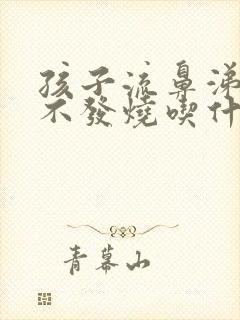 孩子流鼻涕
不發燒喫什
青幕山